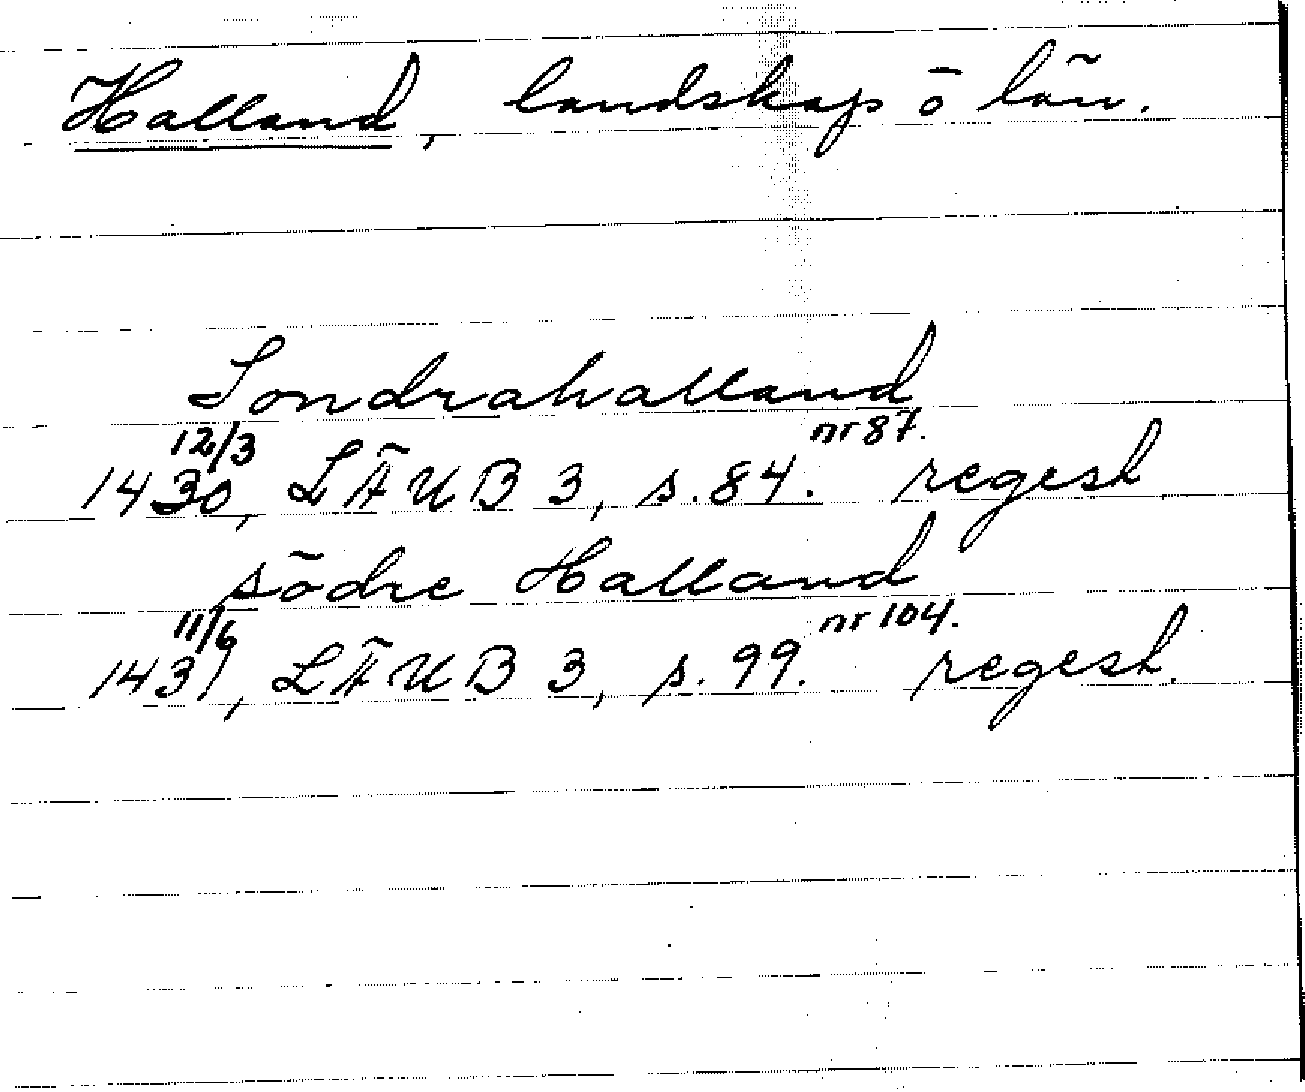 Halland, landskap o län.
Sondrahalland
12/3 nr 87.
1430, LÄUB 3, s. 84. regest
södre Halland
11/6 nr 104.
1431, LÄUB 3, s. 99. regest.